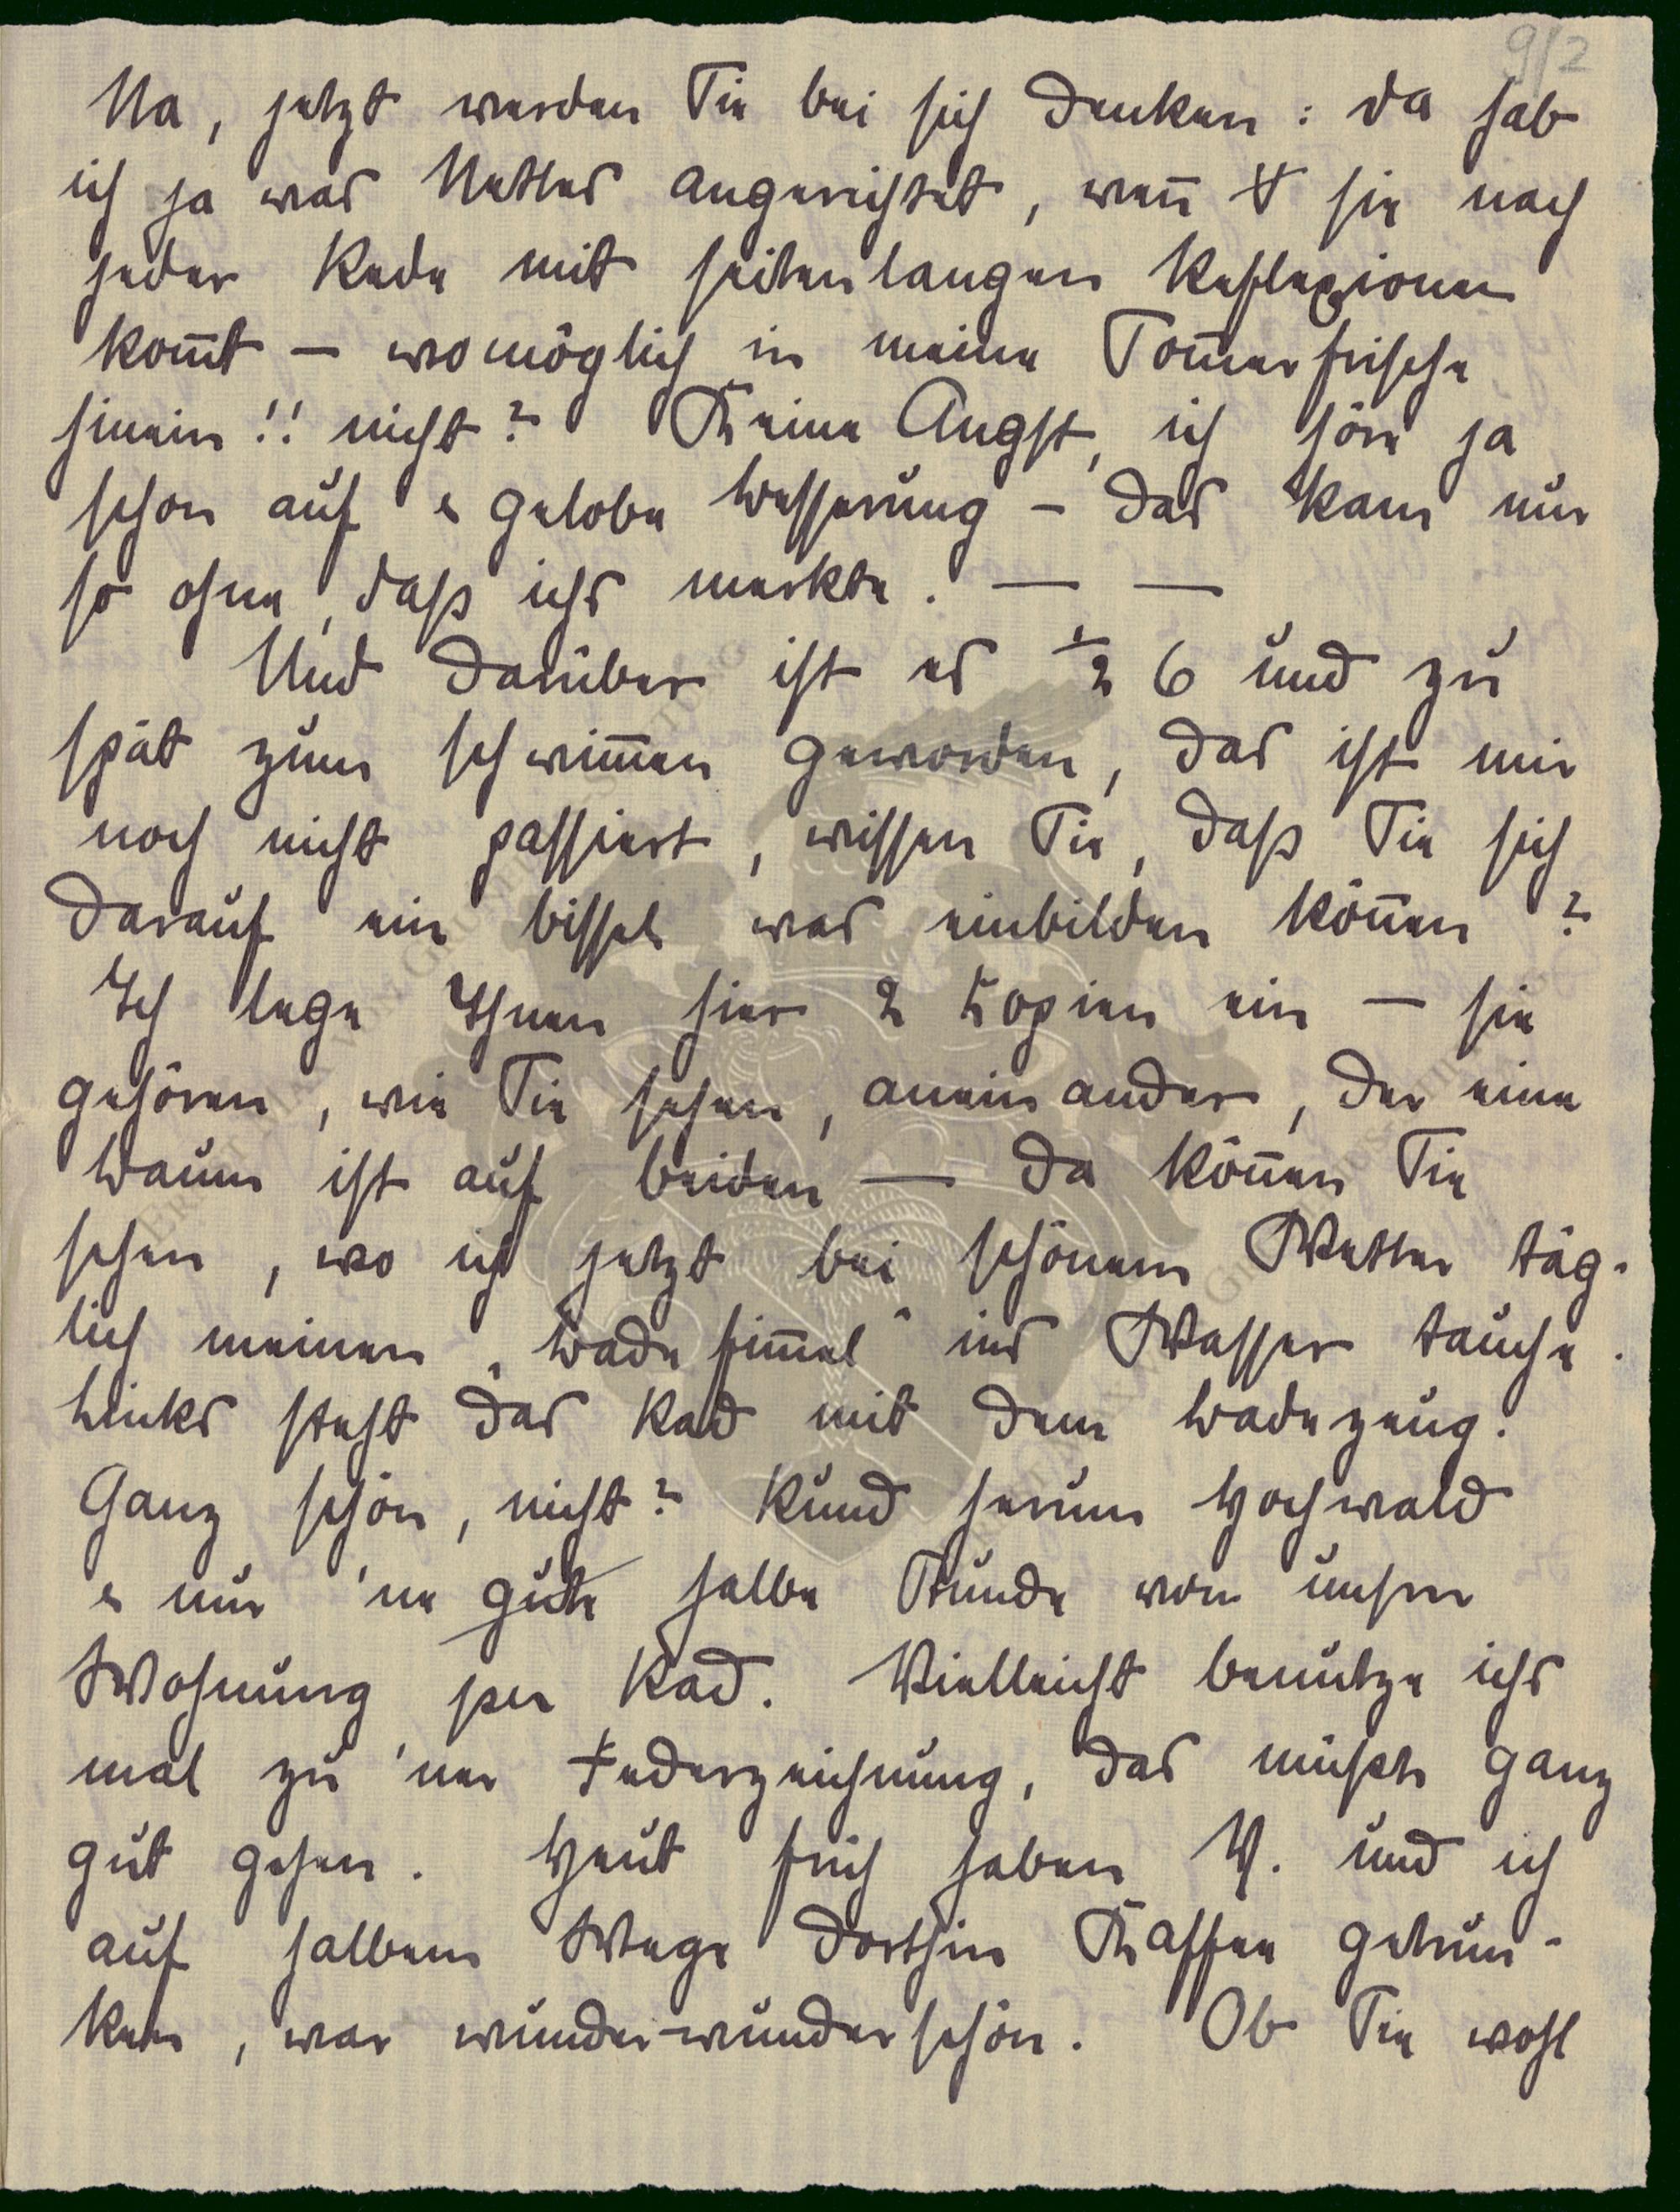 9/2
Na, jetzt werden Sie bei sich denken: da hab
ich ja was Nettes angerichtet, wen̄ sie nach
jeder Rede mit seitenlangen Reflexionen
kom̄t – womöglich in meine Som̄erfrische
hinein!! nicht? Keine Angst, ich höre ja
schon auf & gelobe Besserung – das kam nur
so ohne, daß ichs merkte. — —
Und darüber ist es ½ 6 und zu
spät zum schwim̄en geworden, das ist mir
noch nicht passiert, wissen Sie, daß Sie sich
darauf ein bissel was einbilden kön̄en?
Ich lege Ihnen hier 2 Kopien ein – sie
gehören, wie Sie sehen, aneinander, der eine
Baum ist auf beiden — da kön̄en Sie
sehen, wo ich jetzt bei schönem Wetter täg-
lich meinen „Badefim̄el" ins Wasser tauche.
Links steht das Rad mit dem Badezeug.
Ganz schön, nicht? Rund herum Hochwald
& nur 'ne gute halbe Stunde von unsrer
Wohnung per Rad. Vielleicht benutze ichs
mal zu 'ner Federzeichnung, das müsste ganz
gut gehen. Heut früh haben V. und ich
auf halbem Wege dorthin Kaffee getrun-
ken, war wunder-wunderschön. Ob Sie wohl